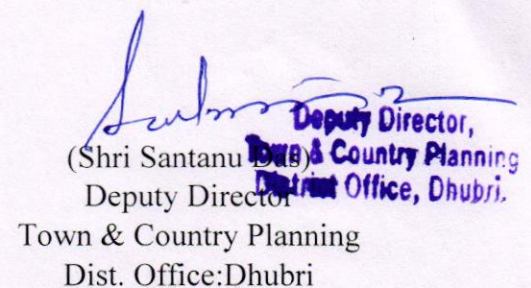 Deputy Director,
Town & Country Planning
District Office, Dhubri.
(Shri Santanu Das)
Deputy Director
Town & Country Planning
Dist. Office:Dhubri